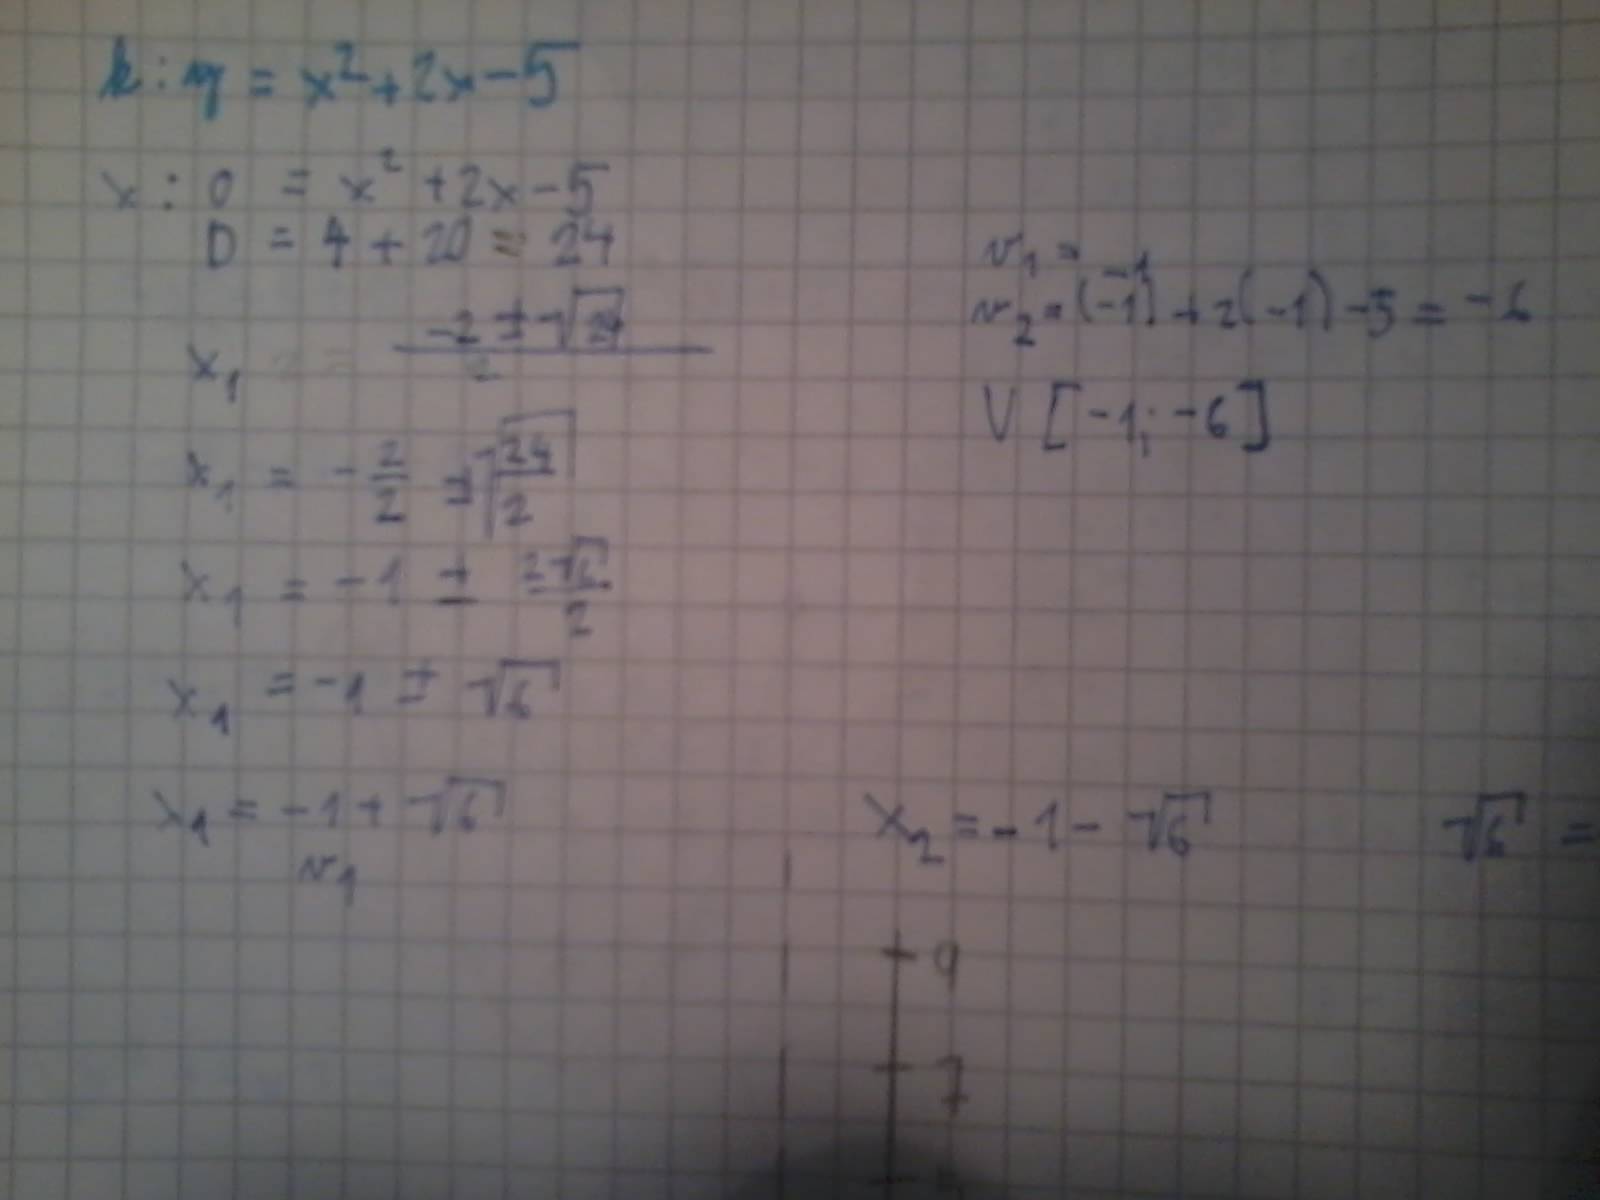 k: y = x² + 2x - 5
x: 0 = x² + 2x - 5
D = 4 + 20 = 24
x₁ = (-2 ± √24) / 2
x₁ = - 2/2 ± √(24/2)
x₁ = -1 ± 2√6 / 2
x₁ = -1 ± √6
x₁ = -1 + √6
v₁
v₁ = -1
v₂ = (-1) + 2(-1) - 5 = -6
V [-1; -6]
x₂ = -1 - √6
√6 =
9
7